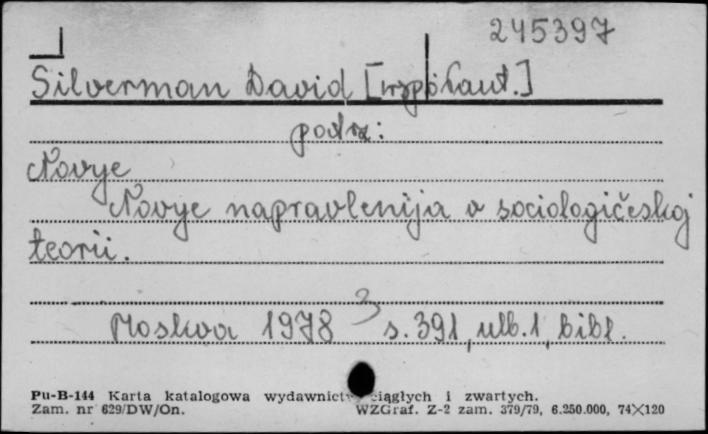 245397
Silverman David [współaut.]
podrz:
Novye
Novye napravlenija v sociologičeskoj
teorii.
3
Moskva 1978 s. 391, ulb. 1, bibl.
Pu-B-144 Karta katalogowa wydawnictw ciągłych i zwartych.
Zam. nr 629/DW/On. WZGraf. Z-2 zam. 379/79, 6.250.000, 74×120